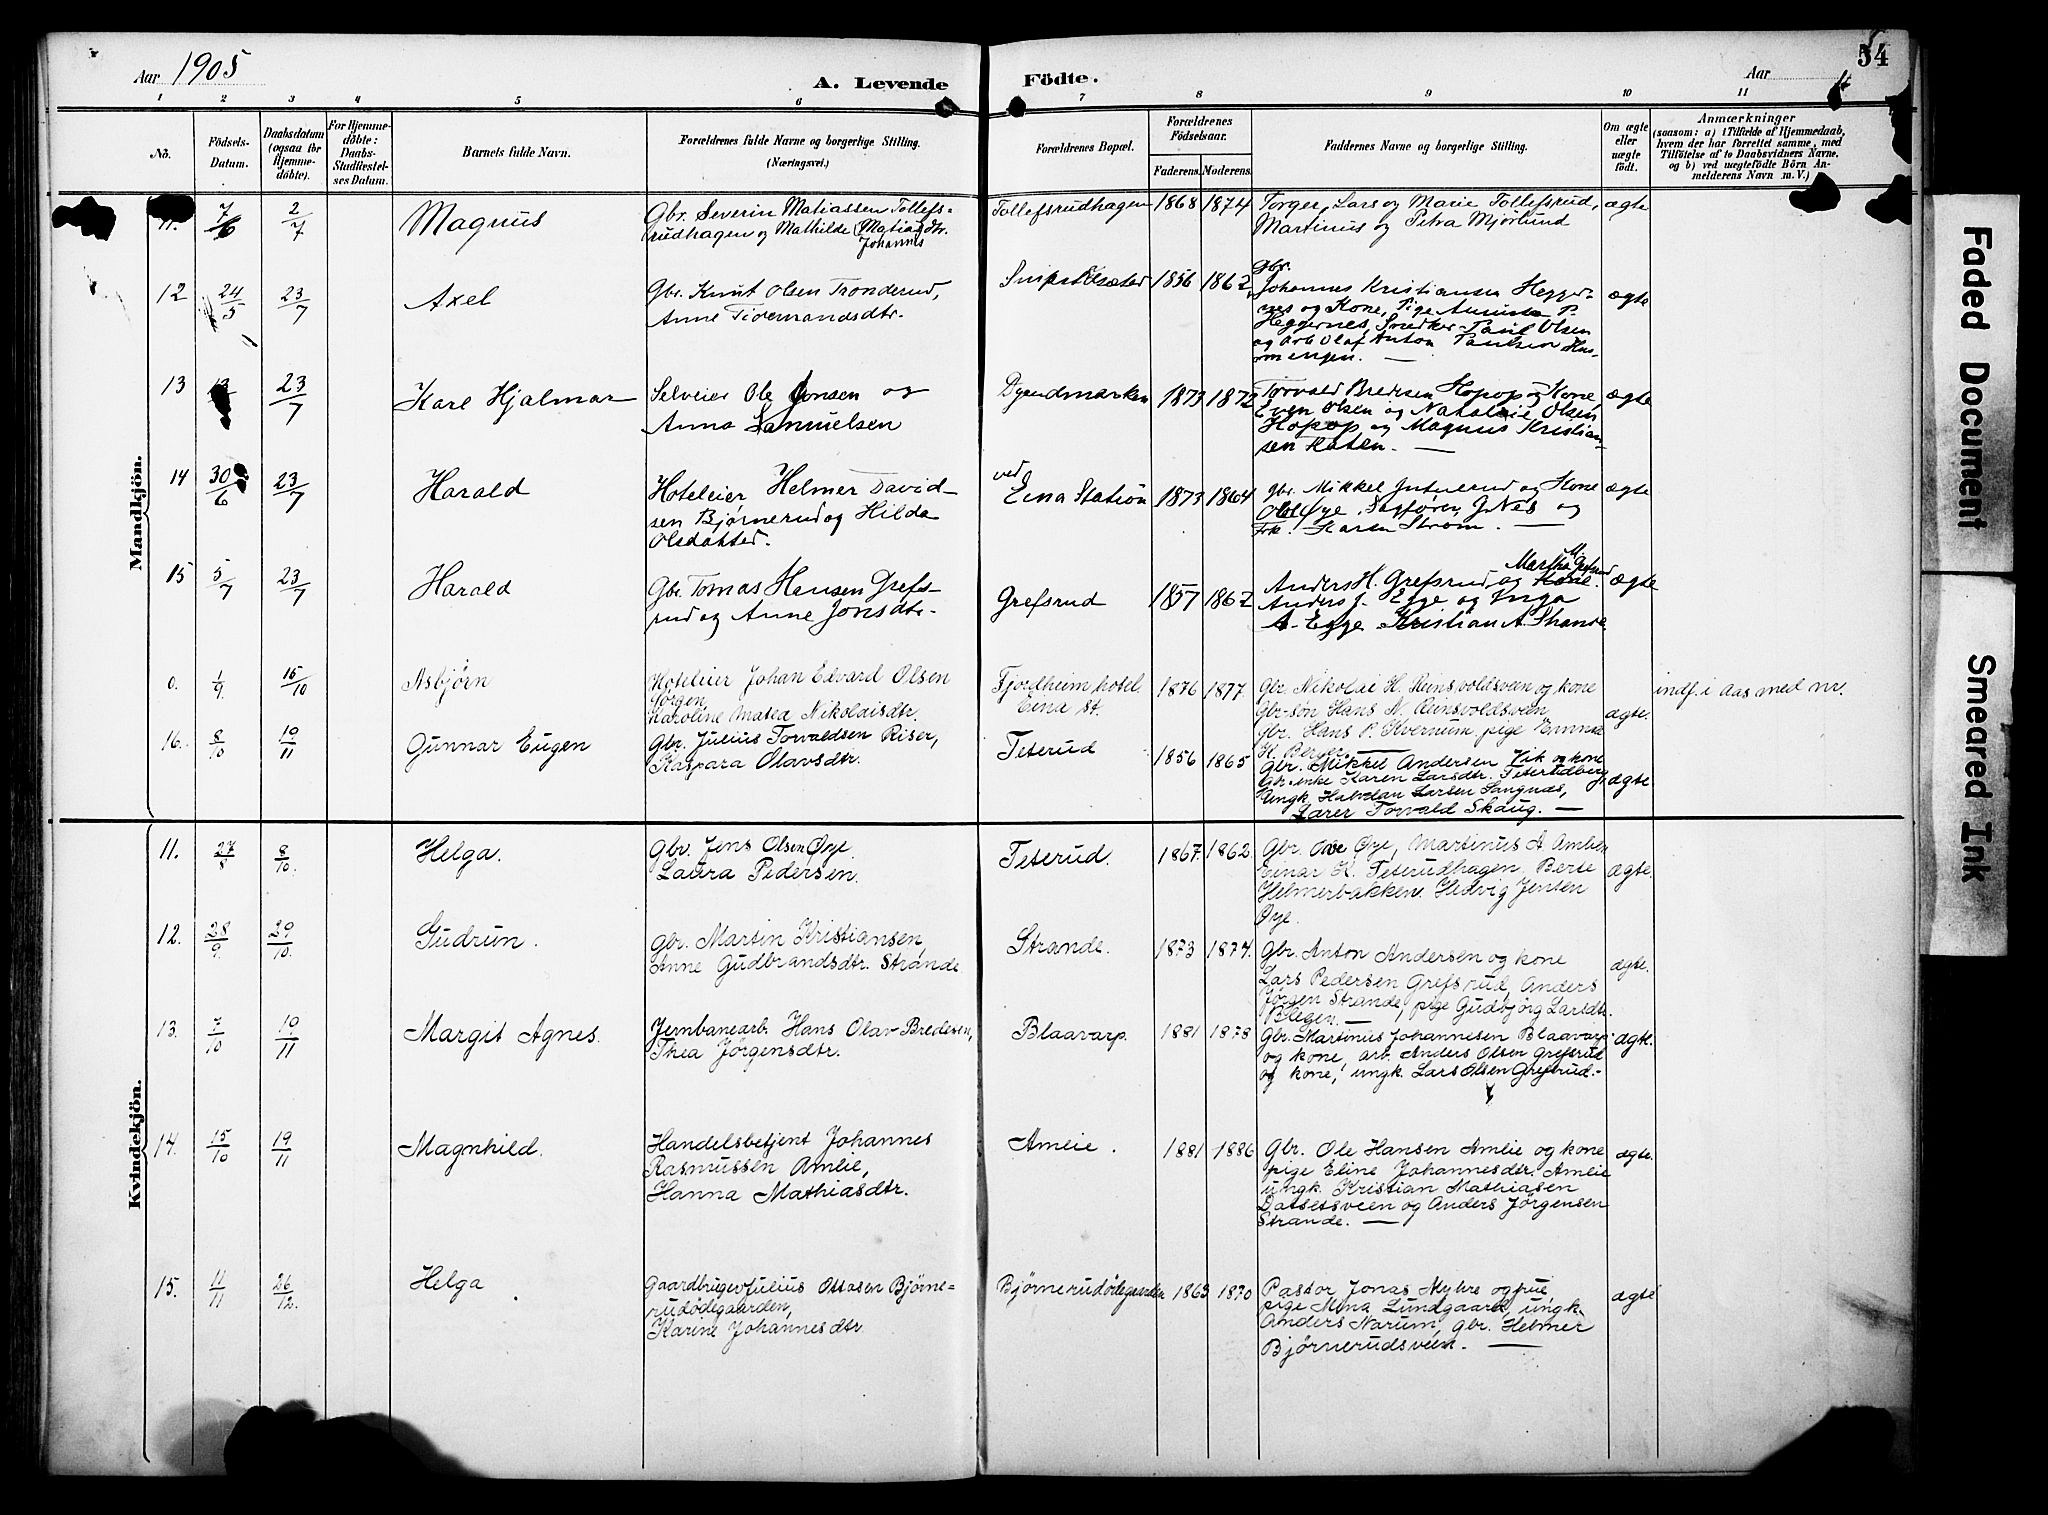 54
Aar 1905
A. Levende
Födte.
Aar
1 2 3 4 5 6 7 8 9 10 11
No.
Födsels-
Datum.
Daabsdatum
(ogsaa for
Hjemme-
döbte).
For Hjemme-
döbte:
Daabs-
Stadfæstel-
ses Datum.
Barnets fulde Navn.
Forældrenes fulde Navne og borgerlige Stilling.
(Næringsvei.)
Forældrenes Bopæl.
Forældrenes
Födselsaar.
Faderens. Moderens.
Faddernes Navne og borgerlige Stilling.
Om ægte
eller
uægte
födt.
Anmærkninger
(saasom: a) i Tilfælde af Hjemmedaab,
hvem der har forrettet samme, med
Tilföielse af to Daabsvidners Navne,
og b) ved uægtefödte Börn An-
melderens Navn m. V.)
Mandkjön.
11. 7/6 2/7 Magnus
Gbr. Severin Matiassen Tollefs-
rudhagen og Mathilde (Matias) dtr.
Johannes
Tollefsrudhagen 1868 1874
Torger, Lars og Marie Tollefsrud,
Martinus og Petra Mjørlund
ægte
12 24/5 23/7 Axel
Gbr. Knut Olsen Tronderud,
Anne Tidemandsdtr.
1856 1862
Gbr.
Johannes Kristiansen Hegger-
nes og Kone, Pige P.
Heggernes, Snedker Paul Olsen
og arb. Olaf Anton Paulsen Hus-
omengen. —
ægte
13 23/7 Karl Hjalmar
Selveier Ole Jonsen og
Anna Samuelsen
Dyendmarken 1873 1872
Torvald Bredesen Hopop og Kone,
Even Olsen og Natalie Olsen
Hopop og Magnus Kristian-
sen Haten. —
ægte
14 30/6 23/7 Harald
Hoteleier Helmer David-
sen Bjørnerud og Hilda
Olsdatter.
ved
Eina Station 1873 1864
Gbr. Mikkel og Kone
Øye, Sagfører J. Nes og
Frk. Karen Strøm. —
ægte
15 5/7 23/7 Harald
Gbr. Tomas Hansen Grefs-
rud og Anne Jonsdtr.
Grefsrud 1857 1862
Martha M. Grefsrud
Anders H. Grefsrud og Kone.
Anders J. Egge og Inga
A. Egge Kristian A. Strande.
ægte
0. 1/9. 15/10 Asbjørn
Hoteleier Johan Edvard Olsen
Sørgen,
Karoline Matea Nikolaisdtr.
Fjordheim hotel
Eina st.
1876 1877.
Gbr. Nikolai H. Reinsvoldsveen og kone
Gbr.søn Hans N. Reinsvoldsveen,
Gbr. Hans P. Kvernum, pige Emma
ægte.
indf. i Aas med nr.
16. 8/10 19/11 Gunnar Eugen
Gbr. Julius Torvaldsen Riser,
Kaspara Olavsdtr.
Teterud 1856 1865
Gbr. Mikkel Andersen Vik og kone
Gbr.enke Karen Larsdtr. Teterudberg,
Ungk. Halvdan Larsen Sangnæs,
Lærer Torvald Skaug. —
ægte.
Kvindekjön.
11. 27/8 8/10. Helga.
Gbr. Jens Olsen Øye.
Laura Pedersen.
Teterud. 1867. 1862.
Gbr. Ove Øye, Martinus A. Amlien
Einar K. Teterudhagen, Berte
Helmerbakken. Hedvig Jensen
Øye.
ægte.
12. 28/9. 29/10. Gudrun.
Gbr. Martin Kristiansen,
Anne Gudbrandsdtr. Strande.
Strande. 1873 1874.
Gbr. Anton Andersen og kone
Lars Pedersen Grefsrud, Anders
Jørgen Strande, pige Gudbjørg Larsdtr.
Blegen. —
ægte.
13. 7/10 19/11 Margit Agnes.
Jernbanearb. Hans Olav Bredesen,
Thea Jørgensdtr.
Blaavarp. 1881 1878
Gbr. Martinus Johannesen Blaavarp
og kone, arb. Anders Olsen Grefsrud
og kone, ungk. Lars Olsen Grefsrud.-
ægte.
14. 15/10 19/11 Magnhild.
Handelsbetjent Johannes
Rasmussen Amlie,
Hanna Mathiasdtr.
Amlie. 1881 1886
Gbr. Ole Hansen Amlie og kone
pige Eline Johannesdtr. Amlie
ungk. Kristian Mathiasen
Datsetsveen og Anders Jørgensen
Strande. —
ægte.
15. 11/11 26/12. Helga
Gaardbruger Julius Ottosen Bjørne-
rudødegaarden,
Karine Johannesdtr.
Bjørnerudødegaarden 1863 1870
Pastor Jonas Myhre og frue,
pige Mina Lundgaard, ungk.
Anders Narum, gbr. Helmer
Bjørnerudsveen. —
ægte
Faded Document
Smeared Ink